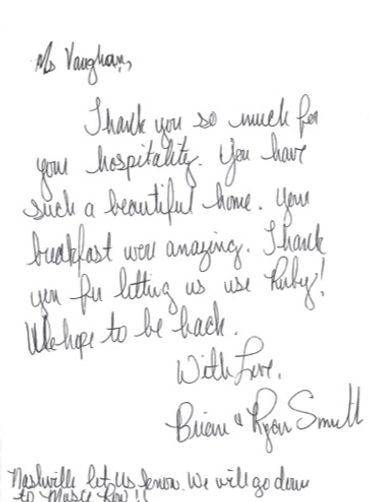 Ms Vaughan,
Thank you so much for
your hospitality. You have
such a beautiful home. Your
breakfast were amazing. Thank
you for letting us use Ruby!
We hope to be back.
With Love,
& Ryan
Nashville let us know. We will go down
to Music Row!!